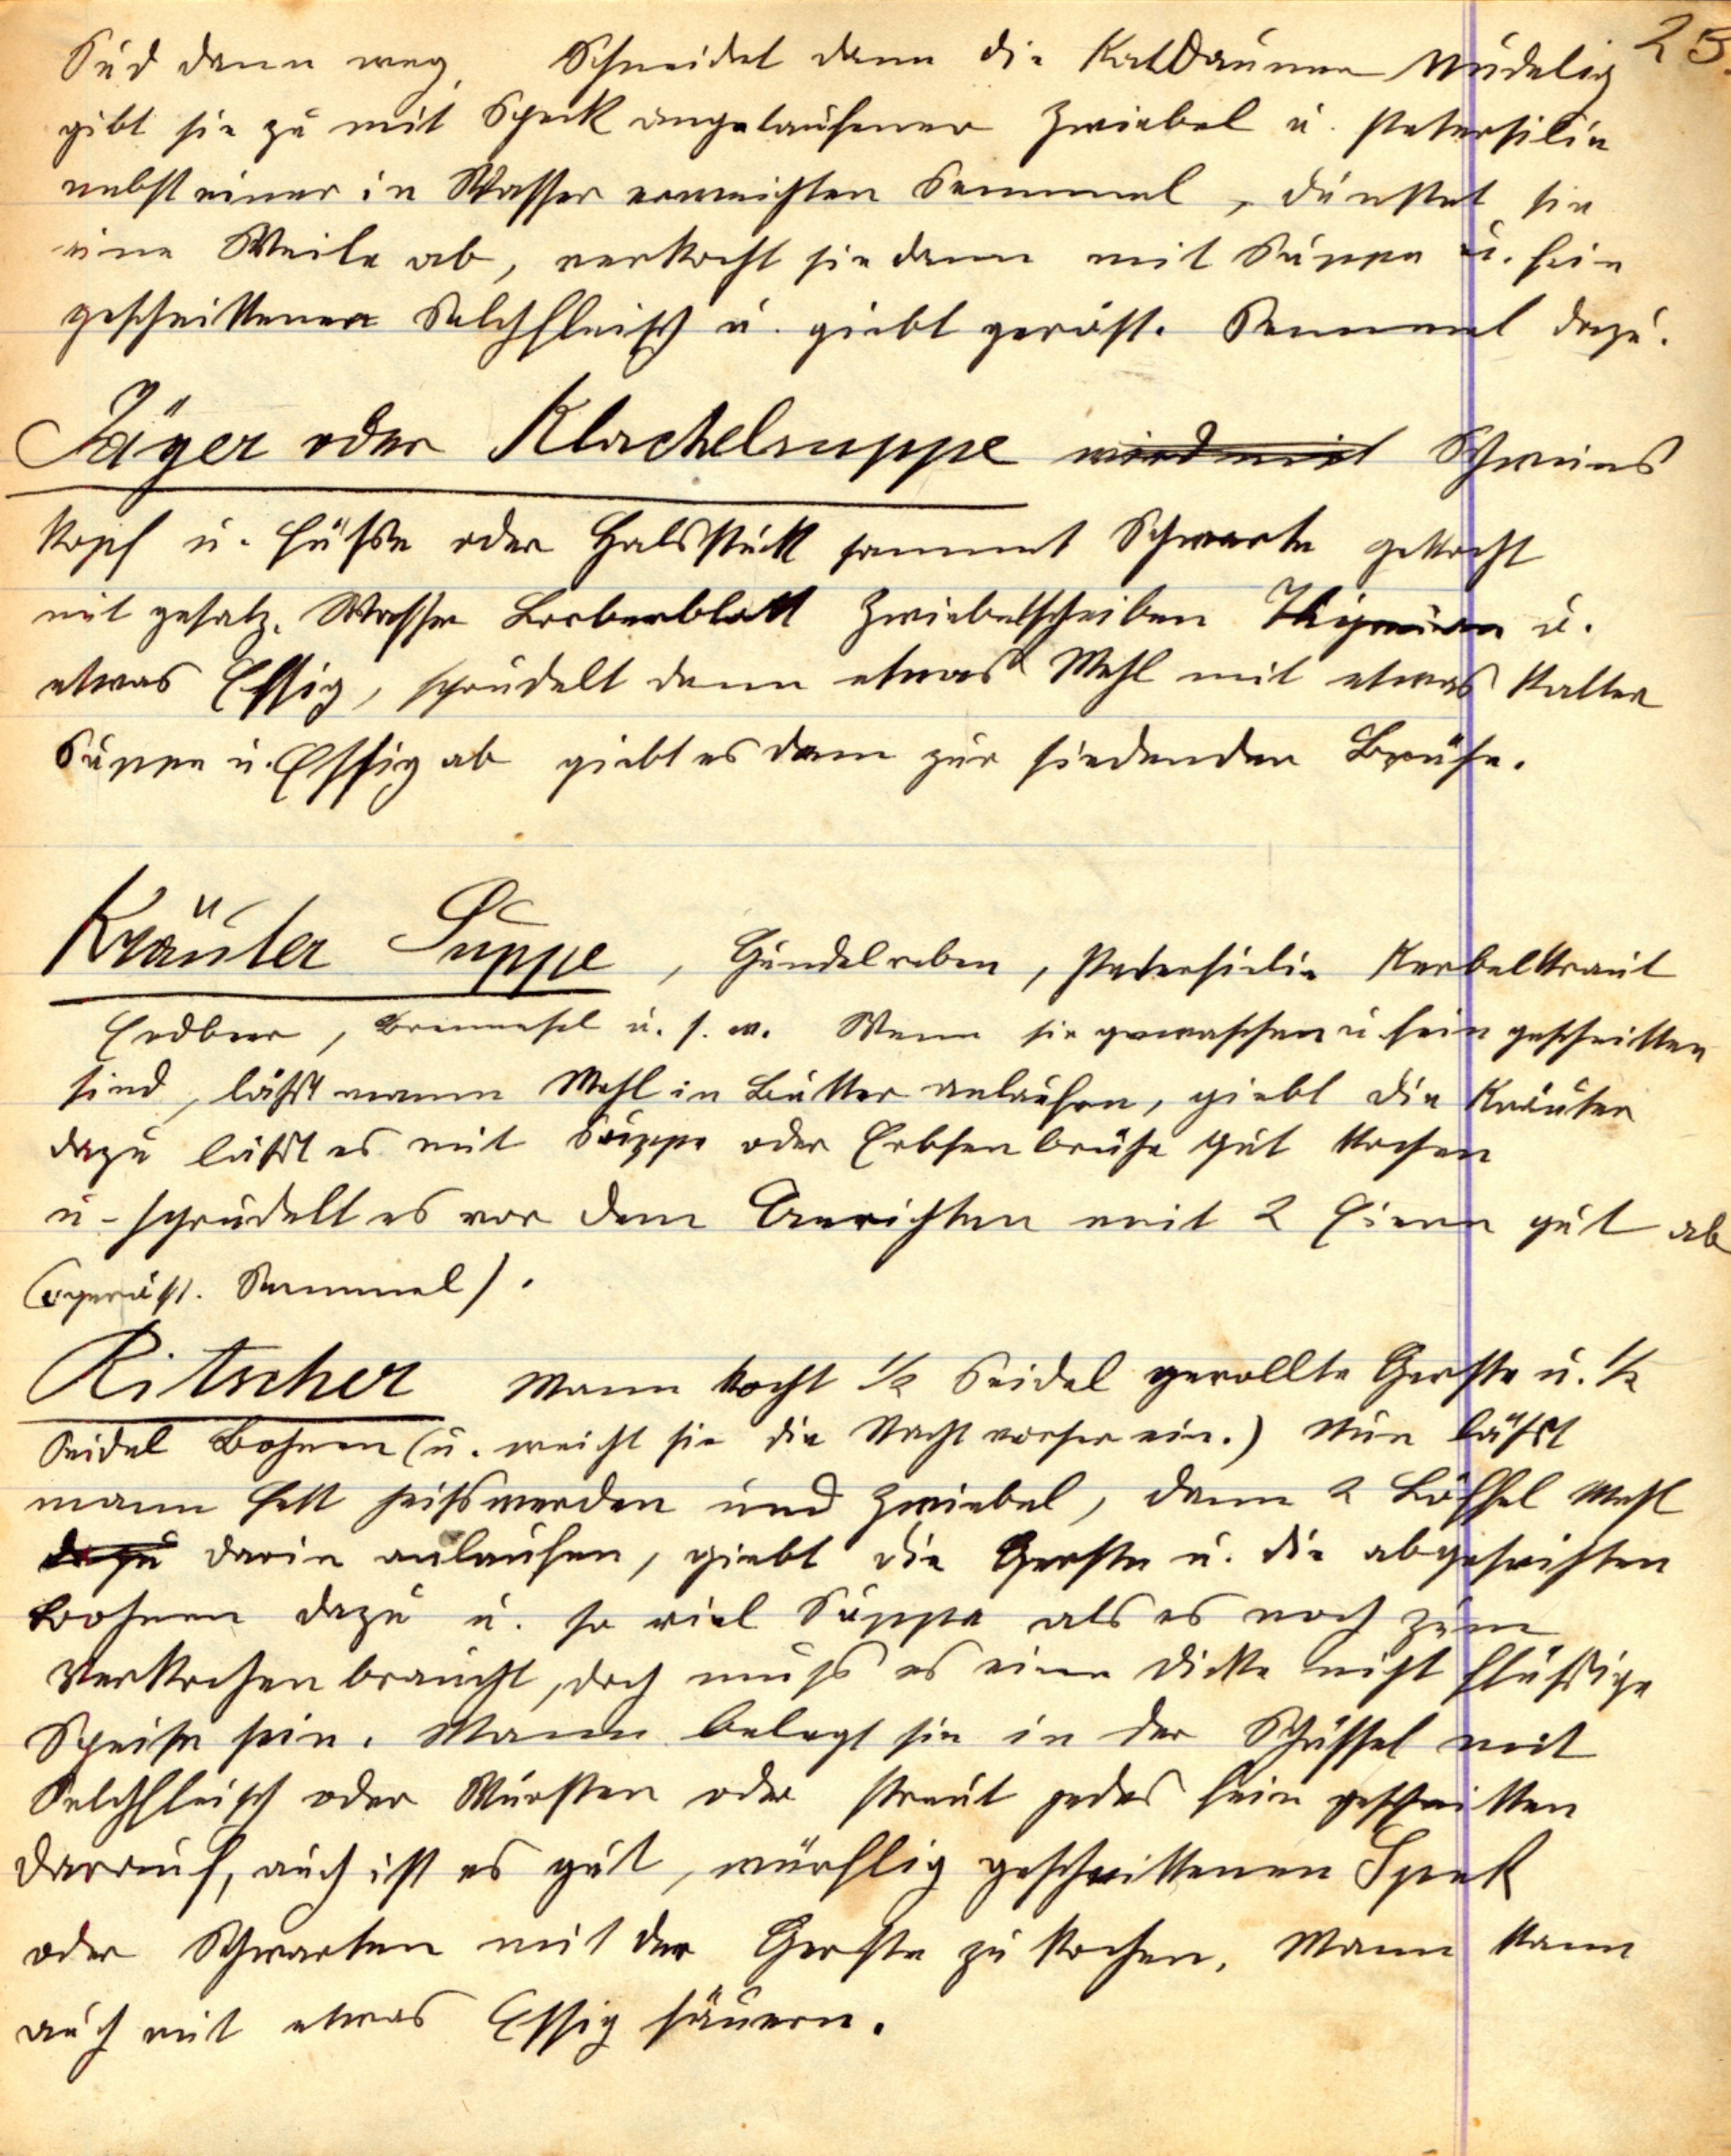 25.
Sud dann weg, Schneidet dann die Kaldaunen Nudelig
gibt sie zu mit Speck angelaufener Zwiebel u. Petersilie
nebst einer in Wasser erweichten Semmel, dünstet sie
eine Weile ab, verkocht sie dann mit Suppe u. fein
geschnittenen Selchfleisch u. giebt geröst. Semmel dazu.
Jäger oder Klachelsuppe wird mit Schweins
kopf u. Füße oder Halsstück sammt Schwarte gekocht
mit gesalz. Wasser Lorberblatt Zwiebelscheiben Thijmian u.
etwas Essig, sprudelt dann etwas Mehl mit etwas kalter
Suppe u. Essig ab giebt es dann zur siedenden Brühe.
Kräuter Suppe, Gundelreben, Petersielie Kerbelkraut
Erdbeer, Brennesel u. s. w. Wenn sie gewaschen u fein geschnitten
sind, läßt mann Mehl in Butter anlaufen, giebt die Kräuter
dazu läßt es mit Suppe oder Erbsenbrühe gut kochen
u. sprudelt es vor dem Anrichten mit 2 Eiern gut ab
(geröst. Semmel).
Ritscher Mann kocht 1/2 Seidel gerollte Gerste u. 1/2
Seidel Bohnen (u. weicht sie die Nacht vorher ein.) Nun läßt
mann Fett heißwerden und Zwiebel, dann 2 Löffel Mehl
dazu darin anlaufen, giebt die Gerste u. die abgeseihten
Bohnen dazu u. so viel Suppe als es noch zum
Verkochen braucht, doch muß es eine dicke nicht flüßige
Speise sein. Mann belegt sie in der Schüssel mit
Selchfleisch oder Würsten oder streut jedes fein geschnitten
darrauf, auch ist es gut, würflig geschnittenen Spek
oder Schwarten mit der Gerste zu kochen. Mann kann
auch mit etwas Essig säuern.